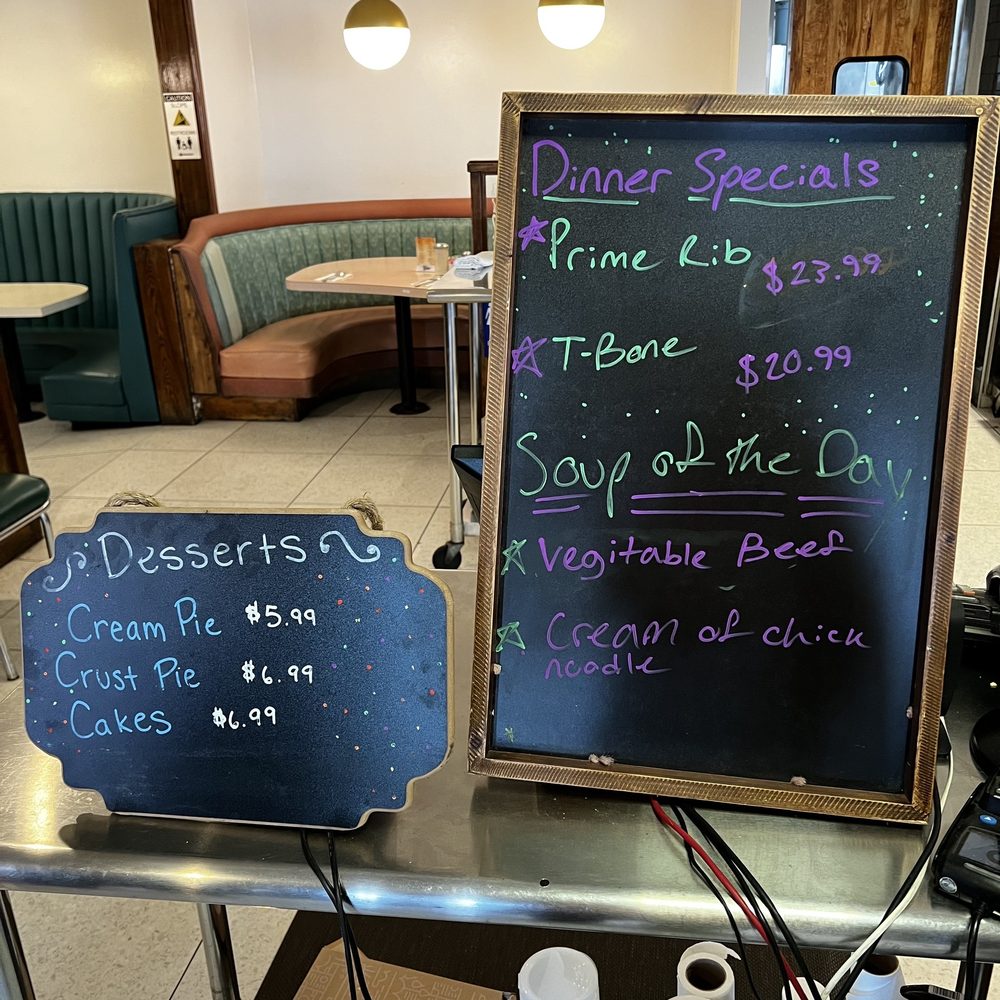 CAUTION
SLOPE
RESTROOMS
Dinner Specials
Prime Rib $23.99
T-Bone $20.99
Soup of the Day
Vegitable Beef
Cream of chick
noodle
Desserts
Cream Pie $5.99
Crust Pie $6.99
Cakes $6.99